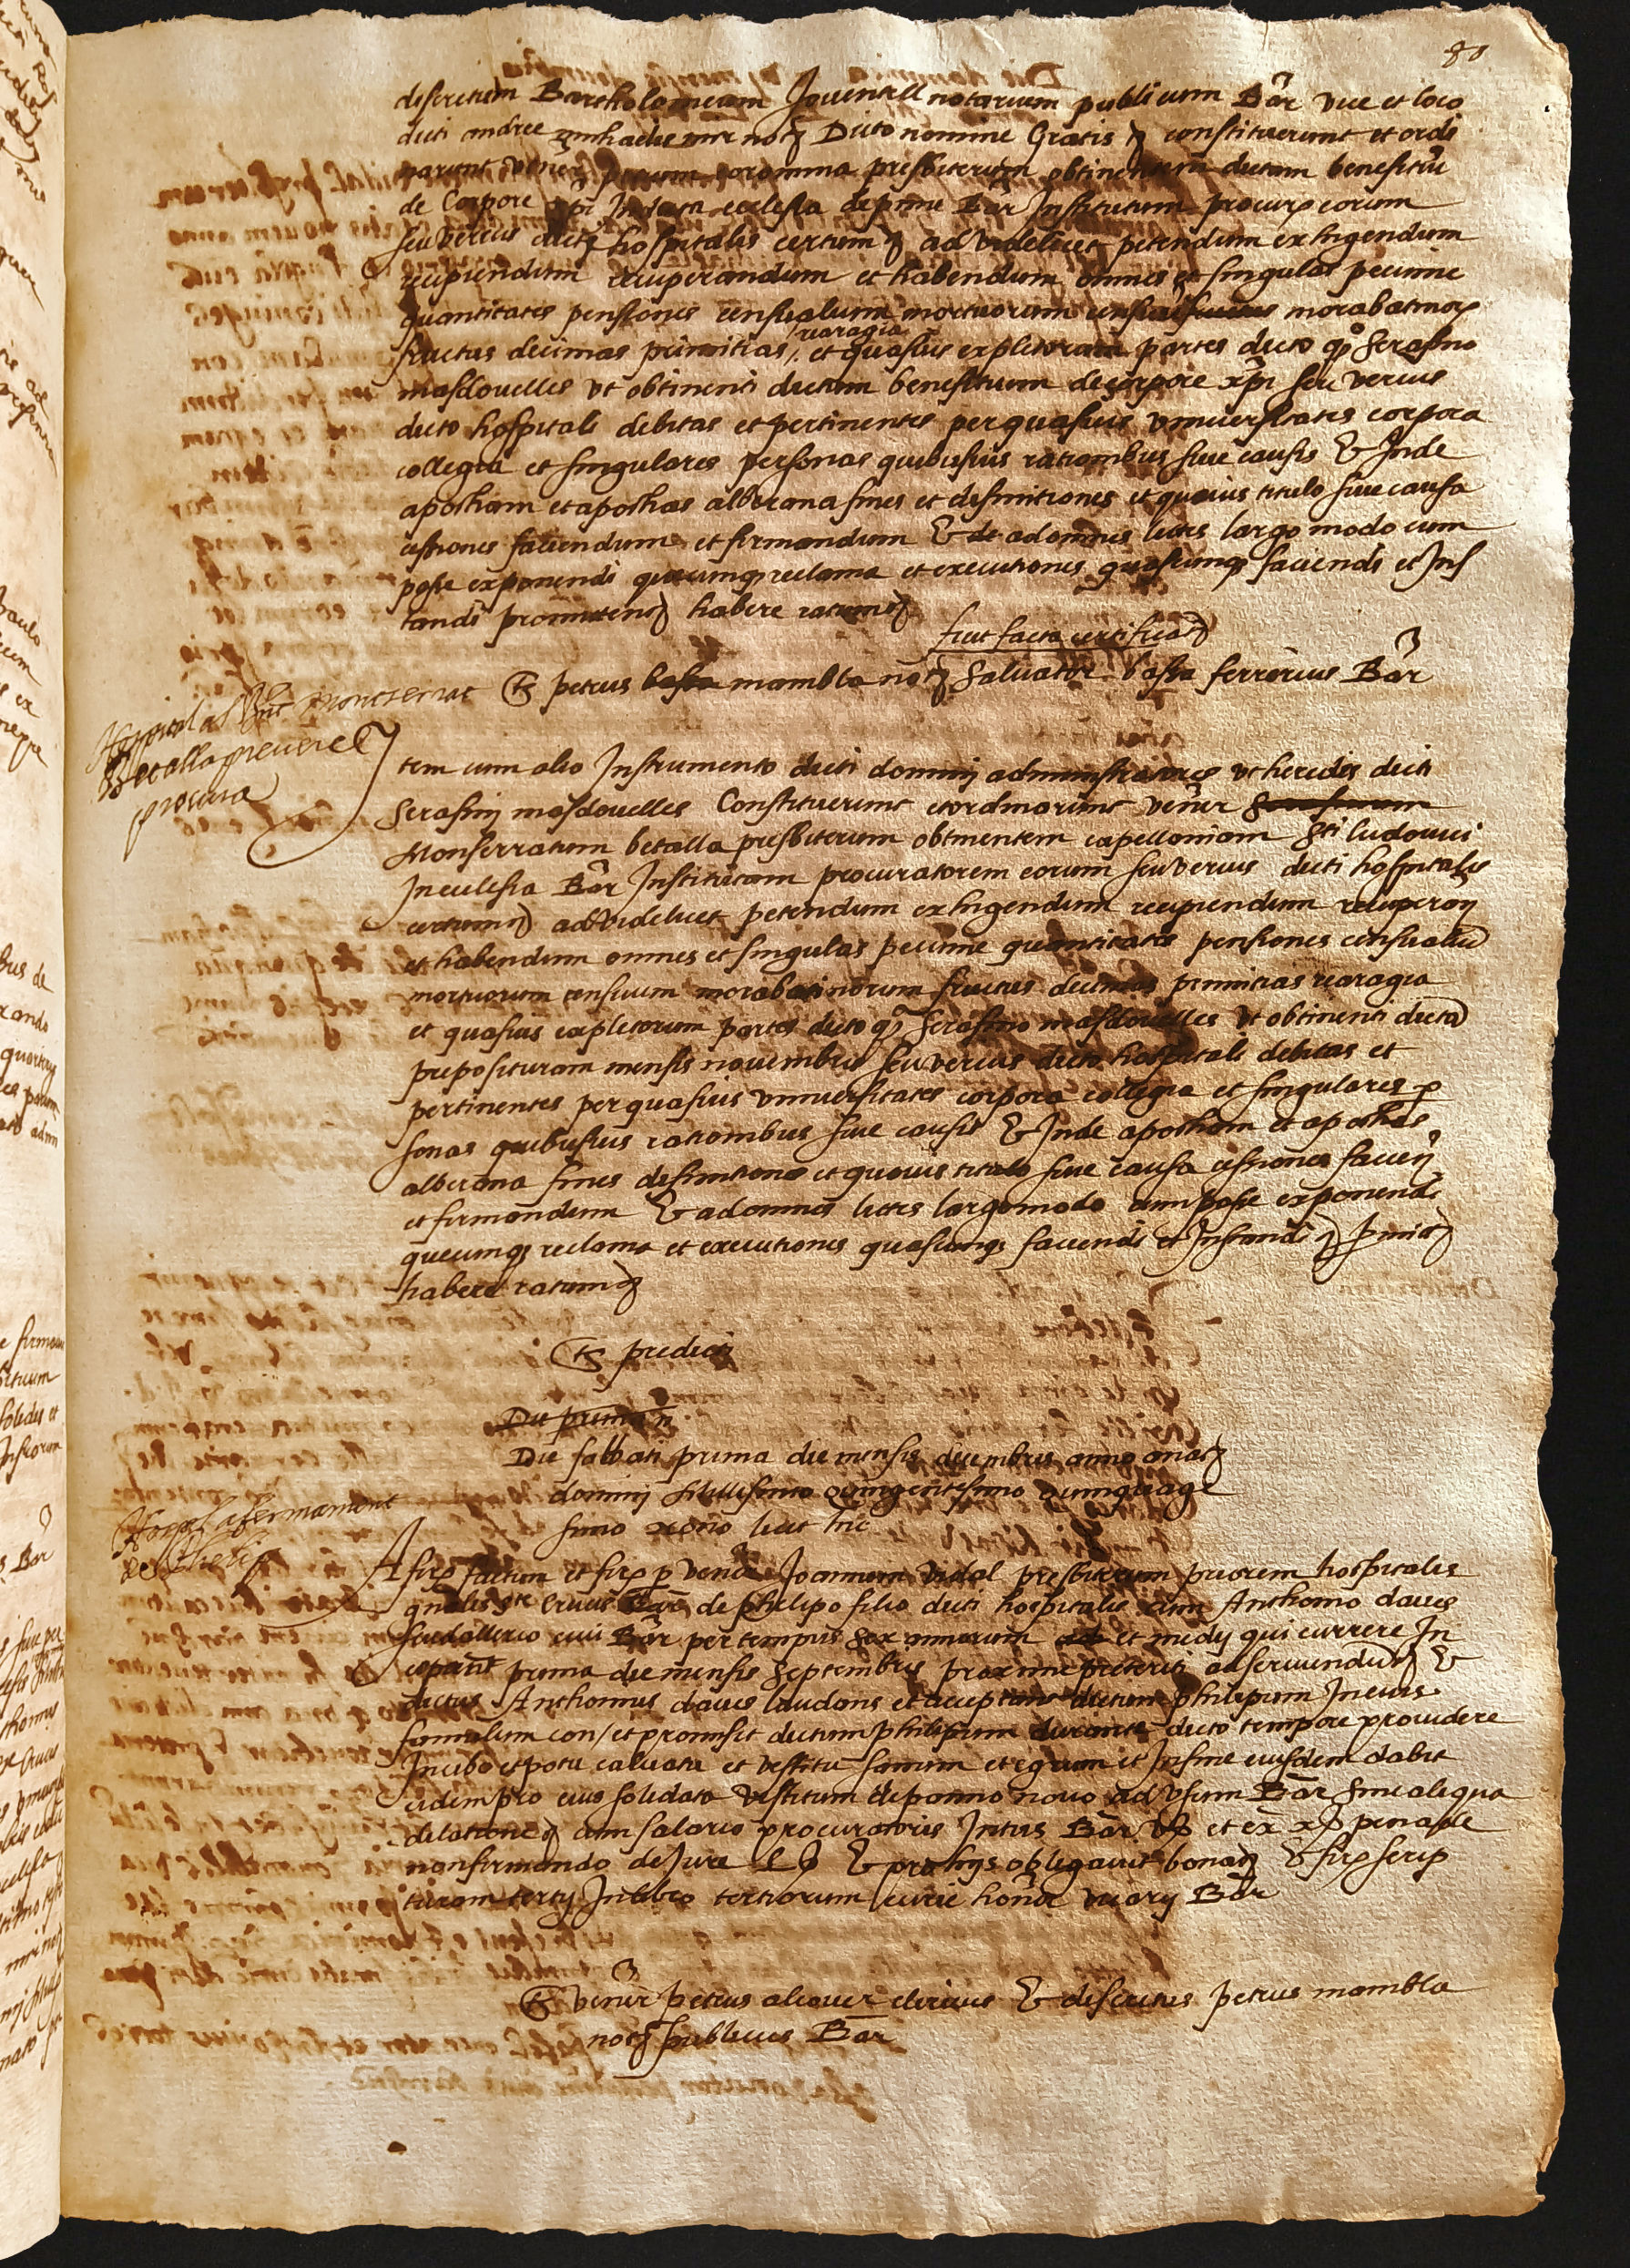 80
discretum Bartholomeum Jouentell notarium publicum Bar̃ vice et loco
dicti andree not Dicto nomine Gratis constituerunt et ordi
narunt vene petrum coromina presbiterum obtinentem dictum benefitiũ
de Corpore xpi In ecclesia de pinu Bar̃ Institutum procur eorum
seu verius dicti hospitalis certum ad videlicet petendum exhigendum
recipiendum recuperandum et habendum omnes et singulas peccunie
quantitates pensiones censualium mortuorum censuũ morabatinor
fructus decimas primitias, reragia et quasuis expletorum partes dicto q° Serafino
masdouelles vt obtinenti dictum benefitium de corpore xp̃i seu verius
dicto hospitali debitas et pertinentes per quasuis vniuersitates corpora
collegia et singulares personas quibusuis rationibus siue causis & Inde
apocham et apochas albarana fines et definitiones et quouis titulo siue causa
cessiones faciendum et firmandum & de ad omnes lictes largo modo cum
posse exponendi quecumq reclama et executiones quascumq faciendi et Ins
tandi promitens habere ratum
fuit facta certificat
Ts petrus bassa mambla not Saluator bassa ferrerius Bar̃
Hospital a Sñr Montserrat
Betalla preuere
procura
Item cum alio Instrumento dicti dominj administratores vt heredes dicti
Serafinj masdouelles Constituerunt et ordinarunt vener
Monserratum betalla presbiterum obtinentem capellaniam Sti ludouici
In ecclesia Bar̃ Institutam procuratorem eorum seu verius dicti hospitalis
certum ad videlicet petendum exhigendum recipiendum recuperan
et habendum omnes et singulas peccunie quantitates pensiones censualiũ
mortuorum censuum morabatinorum fructus decimas primitias reragia
et quasuis expletorum partes dicto q° Serafino masdouelles vt obtinenti dictã
preposituram mensis nouembris seu verius dicto hospitali debitas et
pertinentes per quasuis vniuersitates corpora collegia et singulares p
sonas quibusuis rationibus siue causis & Inde apocham et apochas
albarana fines definitiones et quouis titulo siue causa cessiones facien
et firmandum & ad omnes lictes largo modo cum posse exponendi
quecumq reclama et executiones quascumq faciendi et Instandi promit
habere ratum
Ts predicti
Die prima
Die sabbati prima die mensis decembris anno a nat
dominj Millesimo quingentesimo quinquage
simo nono
Hospl afermament
de Phelip
A firº factum et firº p vener Joannem vidal presbiterum priorem hospitalis
gñalis Ste Crucis Bar̃ de philipo filio dicti hospitalis cum Anthonio daues
ciui Bar̃ per tempus sex annorum et medij qui currere In
ceperunt prima die mensis Septembris proxime preteriti ad seruiendum &
dictus Anthonius daues laudans et acceptans dictum philipum In eius
famulum con/ et promisit dictum philipum durante dicto tempore prouidere
In cibo et potu calciatu et vestitu sanum et egrum et In fine eiusdem dabit
eidem pro eius soldata vestitum de panno nouo ad vsum Bar̃ sine aliqua
dilatione cum salario procuratoris Intus Bar̃ et ex pena de
non firmando de Jure & pro hijs obligauit bona & firº scrip
turam tertij In libro tertiorum curie honor vicarij Bar̃
Ts vener petrus alcouer clericus & discretus petrus mambla
not publicus Bar̃